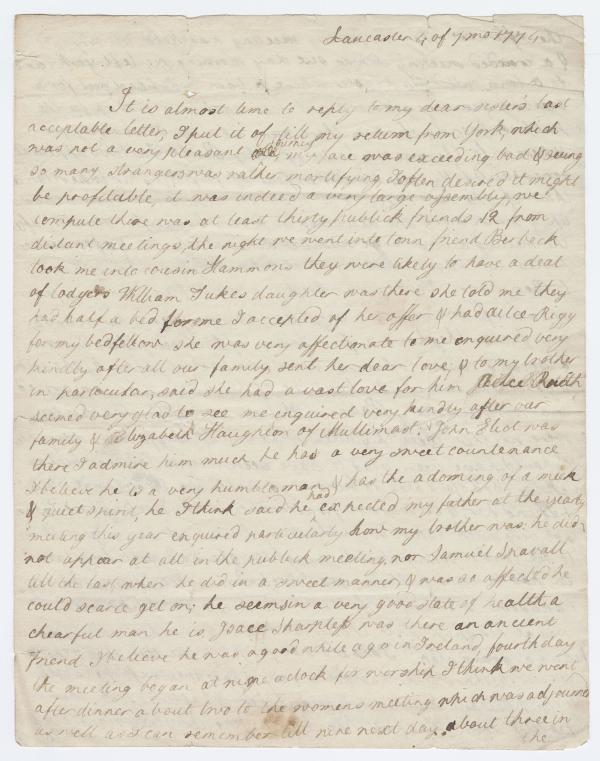 Lancaster 4 of 7 mo 1774
It is almost time to reply to my dear sister's last
acceptable letter, I put it of till my return from York, which
was not a very pleasant journey, my face was exceeding bad & seeing
so many strangers was rather mortifying I often desired it might
be profitable, it was indeed a very large assembly, we
compute there was at least thirty publick friends 12 from
distant meetings, the night we went into town friend Berbeck
took me into cousin Hammons they were likely to have a deal
of lodgers William Tukes daughter was there she told me they
had half a bed for me I accepted of her offer & had alice Rigy
for my bedfellow she was very affectionate to me enquired very
kindly after all our family, sent her dear love, & to my brother
in particular, said she had a vast love for him
seemed very glad to see me enquired very kindly after our
family & Elizabeth Haughton of Mullimast. John Eliot was
there I admire him much he has a very sweet countenance
I believe he is a very humble man & has the adorning of a meek
& quiet spirit, he I think said he had expected my father at the yearly
meeting this year enquired particularly how my brother was: he did
not appear at all in the publick meeting, nor Samuel
till the last when he did in a sweet manner, & was so affected he
could scarce get on; he seems in a very good state of health a
chearful man he is, Isaac Sharpless was there an ancient
friend I believe he was a good while ago in Ireland, fourth day
the meeting began at nine aclock for worship I think we went
after dinner about two to the womens meeting which was adjourned
as well as I can remember till nine next day. about three in
the